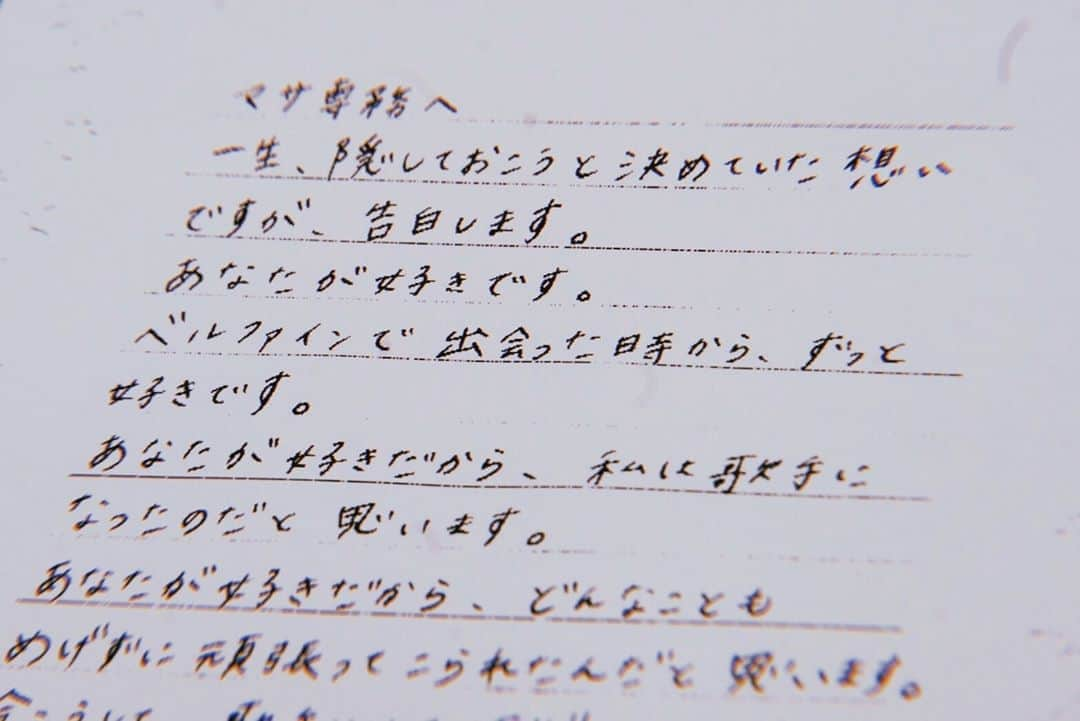 マサ専務へ
一生、隠しておこうと決めていた想い
ですが、告白します。
あなたが好きです。
ベルファインで出会った時から、ずっと
好きです。
あなたが好きだから、私は歌手に
なったのだと思います。
あなたが好きだから、どんなことも
めげずに頑張ってこられたんだと思います。